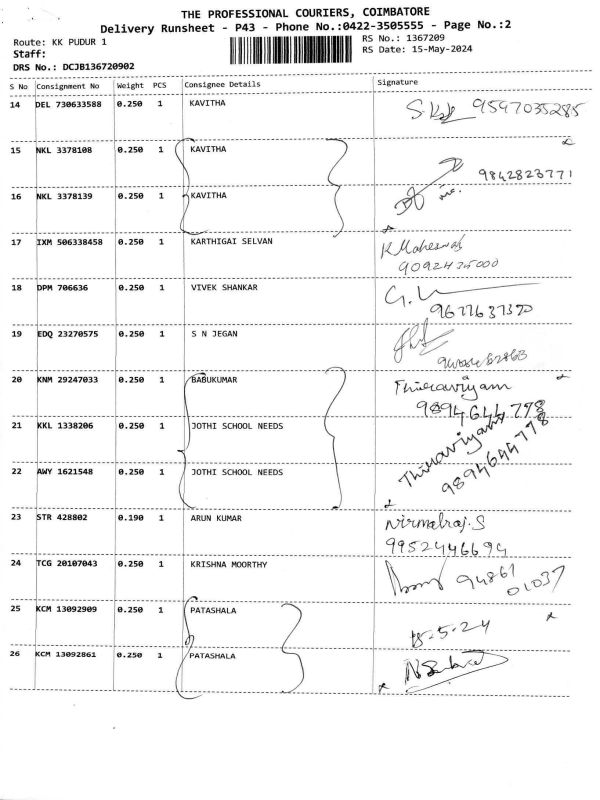 THE PROFESSIONAL COURIERS, COIMBATORE
Delivery Runsheet - P43 - Phone No.:0422-3505555 - Page No.:2
Route: KK PUDUR 1
RS No.: 1367209
Staff:
RS Date: 15-May-2024
DRS No.: DCJB136720902
S No Consignment No Weight PCS Consignee Details Signature
14 DEL 730633588 0.250 1 KAVITHA 9597035285
15 NKL 3378108 0.250 1 KAVITHA
9842823771
16 NKL 3378139 0.250 1 KAVITHA
17 IXM 506338458 0.250 1 KARTHIGAI SELVAN
18 DPM 706636 0.250 1 VIVEK SHANKAR
9677637320
19 EDQ 23270575 0.250 1 S N JEGAN
20 KNM 29247033 0.250 1 BABUKUMAR Thiraviyam
9894644778
21 KKL 1338206 0.250 1 JOTHI SCHOOL NEEDS Thiraviyam
9894644778
22 AWY 1621548 0.250 1 JOTHI SCHOOL NEEDS
23 STR 428802 0.190 1 ARUN KUMAR Nirmalraj.S
9952446694
24 TCG 20107043 0.250 1 KRISHNA MOORTHY 94861
01037
25 KCM 13092909 0.250 1 PATASHALA
15-5-24
26 KCM 13092861 0.250 1 PATASHALA